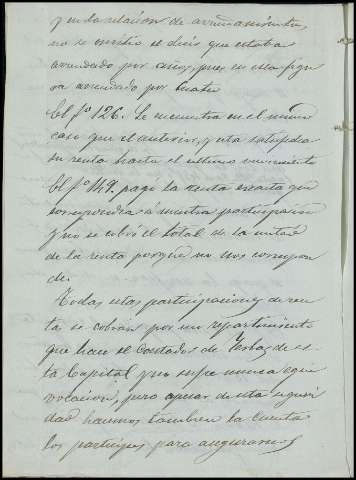 y en la relacion de arrendamientos,
no se omitió el decir que estaba
arrendado por años, pues en ella figu
ra arrendado por cuatro
El fº 126. Se encuentra en el mismo
caso que el anterior, y esta satisfecha
su renta hasta el ultimo vencimiento
El fº 149. pagó la renta exacta que
correspondia á nuestra participacion
y no se cobró el total de la mitad
de la renta porque no nos correspon
de.
Todas estas participaciones de ren
ta se cobran por un repartimiento
que hace el Contador de Yerbas de es
ta Capital y no sufre nunca equi
vocacion, pero apesar de esta seguri
dad hacemos tambien la cuenta
los participes para asegurarnos